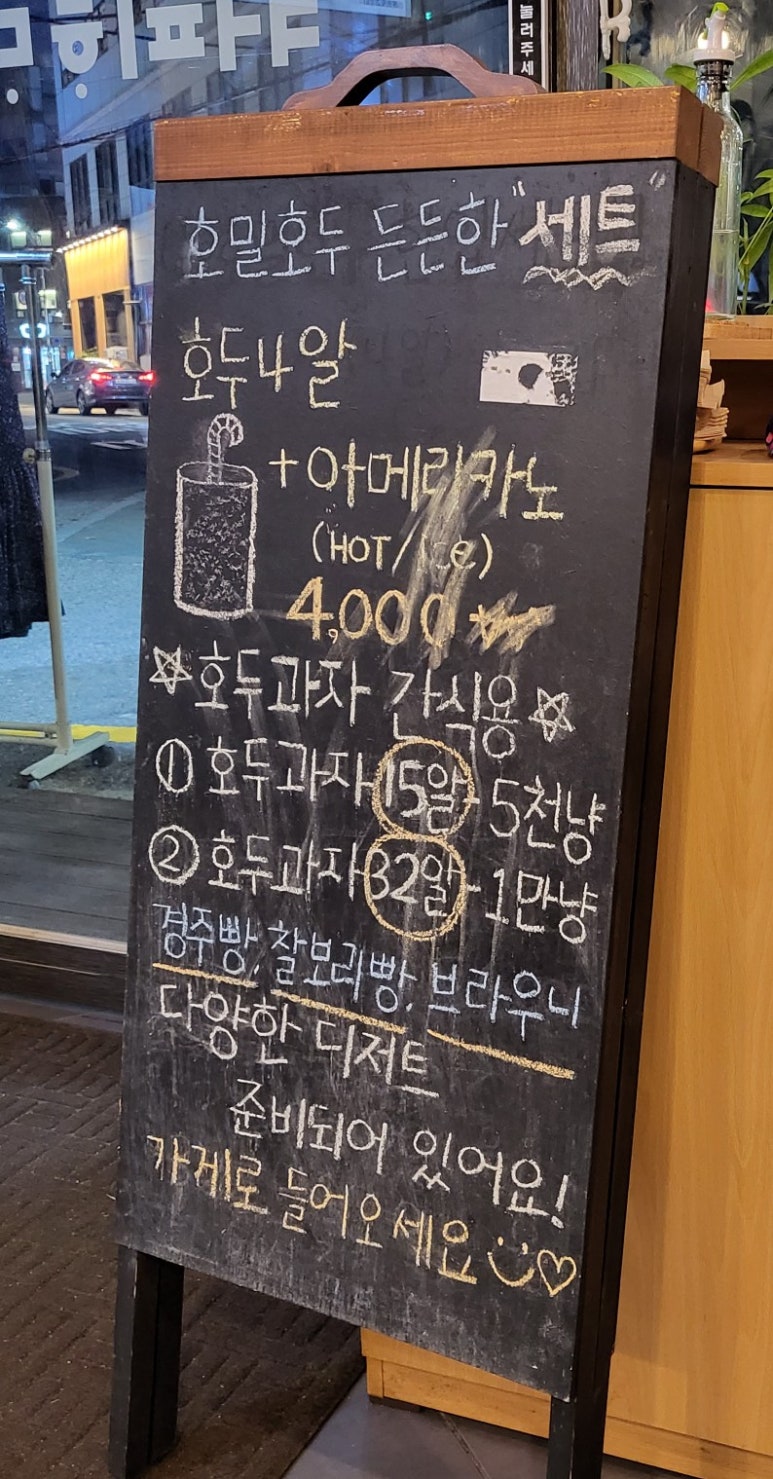 눌러주세
호밀호두 든든한 "세트"
호두 4알
+아메리카노
(HOT/ice)
4,000
☆호두과자 간식용☆
① 호두과자 15알 - 5천냥
② 호두과자 32알 - 1만냥
경주빵, 찰보리빵, 브라우니
다양한 디저트
준비되어 있어요!
가게로 들어오세요